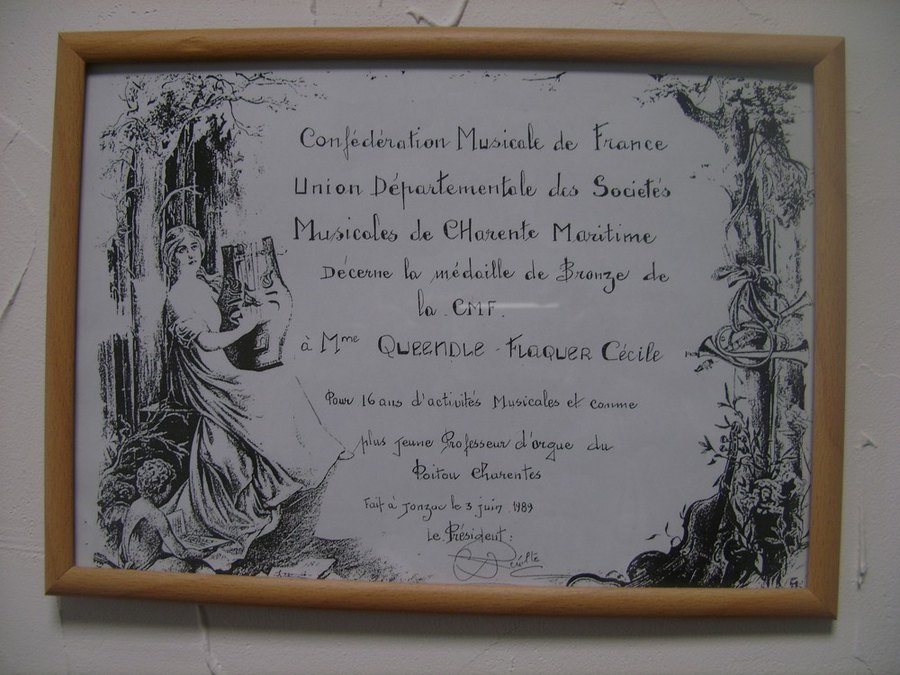 Confédération Musicale de France
Union Départementale des Societés
Musicales de CHarente Maritime
Décerne la médaille de Bronze de
la CMF.
à Mme QUEENDLE - FLAQUER Cécile
Pour 16 ans d'activités Musicales et comme
plus jeune Professeur d'orgue du
Poitou Charentes
Fait à Jonzac le 3 juin 1989
Le Président: